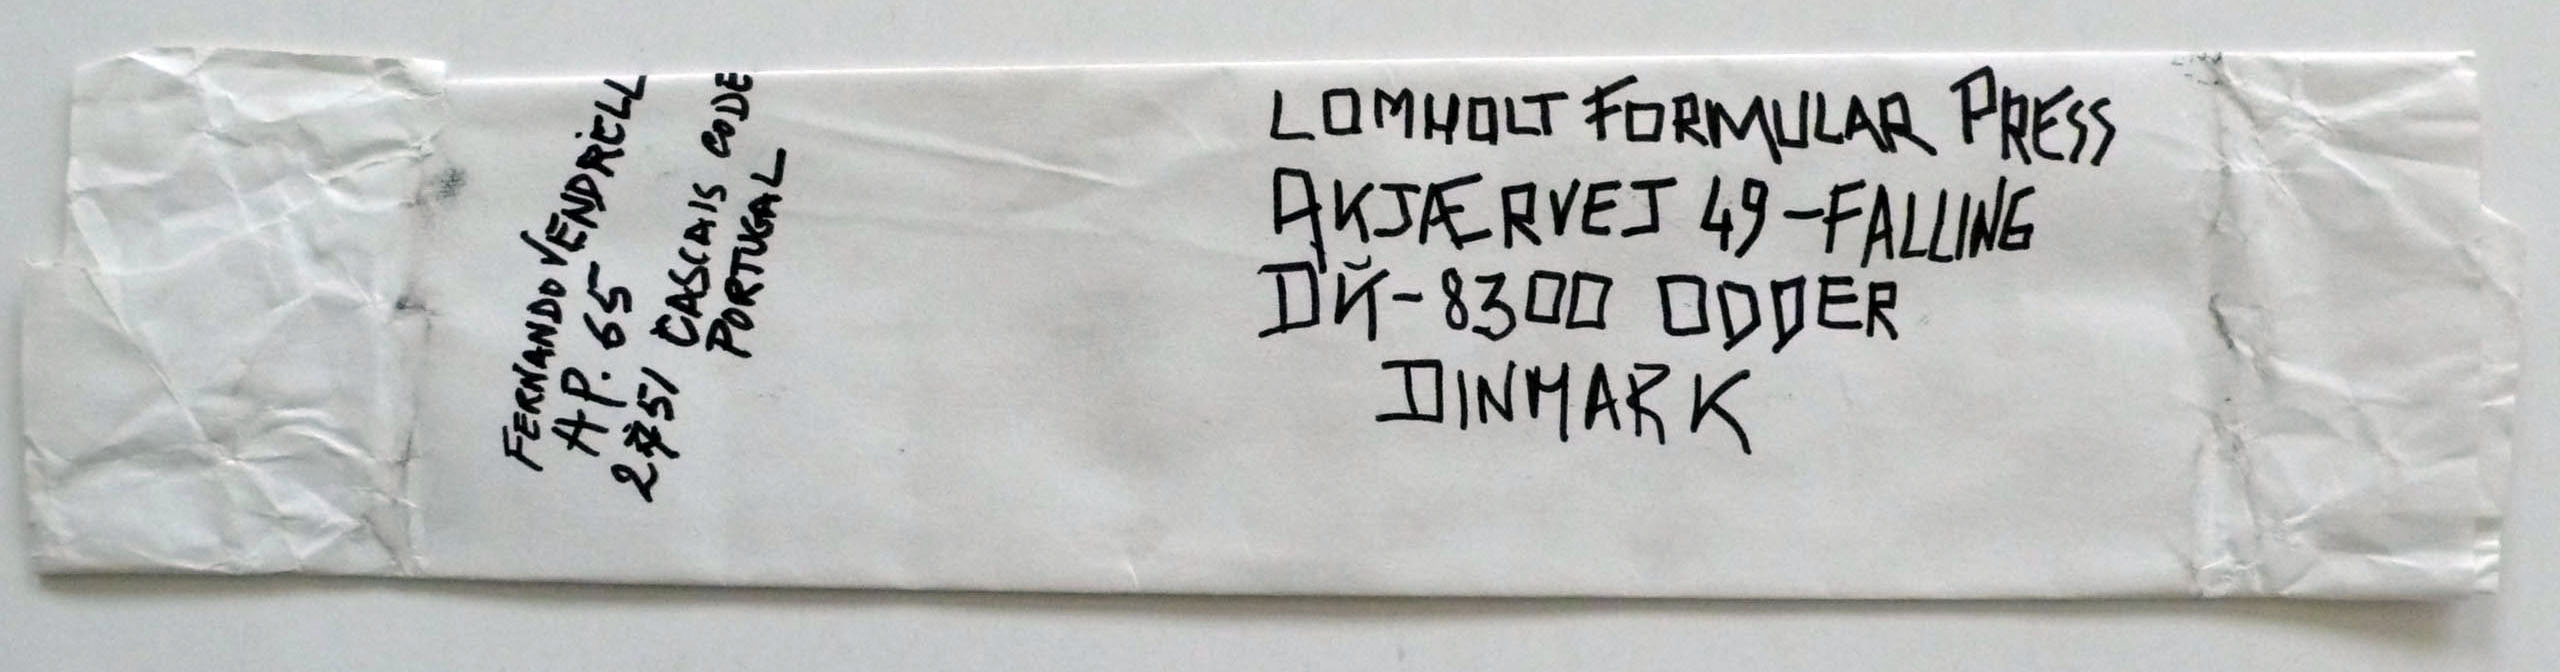 FERNANDO VENDRELL
AP. 65
2751 CASCAIS CODE
PORTUGAL
LOMHOLT FORMULAR PRESS
AKJÆRVEJ 49-FALLING
DK-8300 ODDER
DINMARK